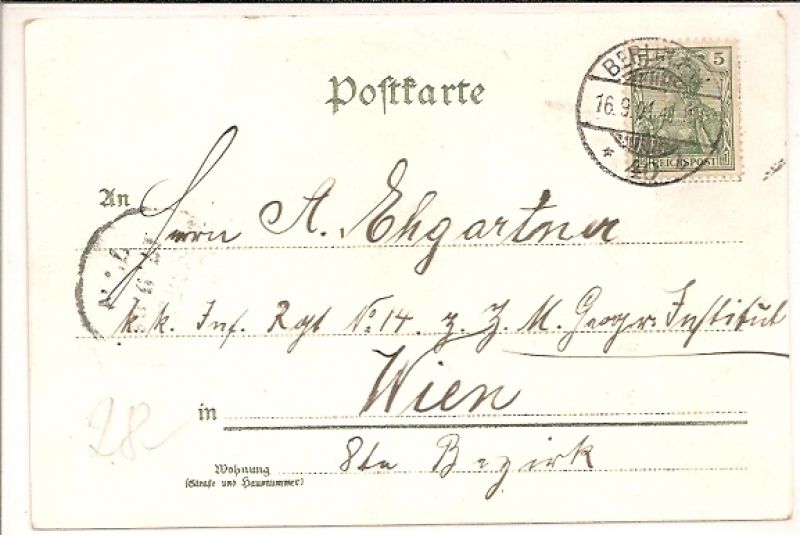 Postkarte
BERLIN
16.9.01
5
REICHSPOST
An
Herrn A. Ehgartner
k. k. Inf. Rgt No. 14. z. Z. M. Geogr. Institut
in Wien
8ter Bezirk
Wohnung
(Straße und Hausnummer)
28